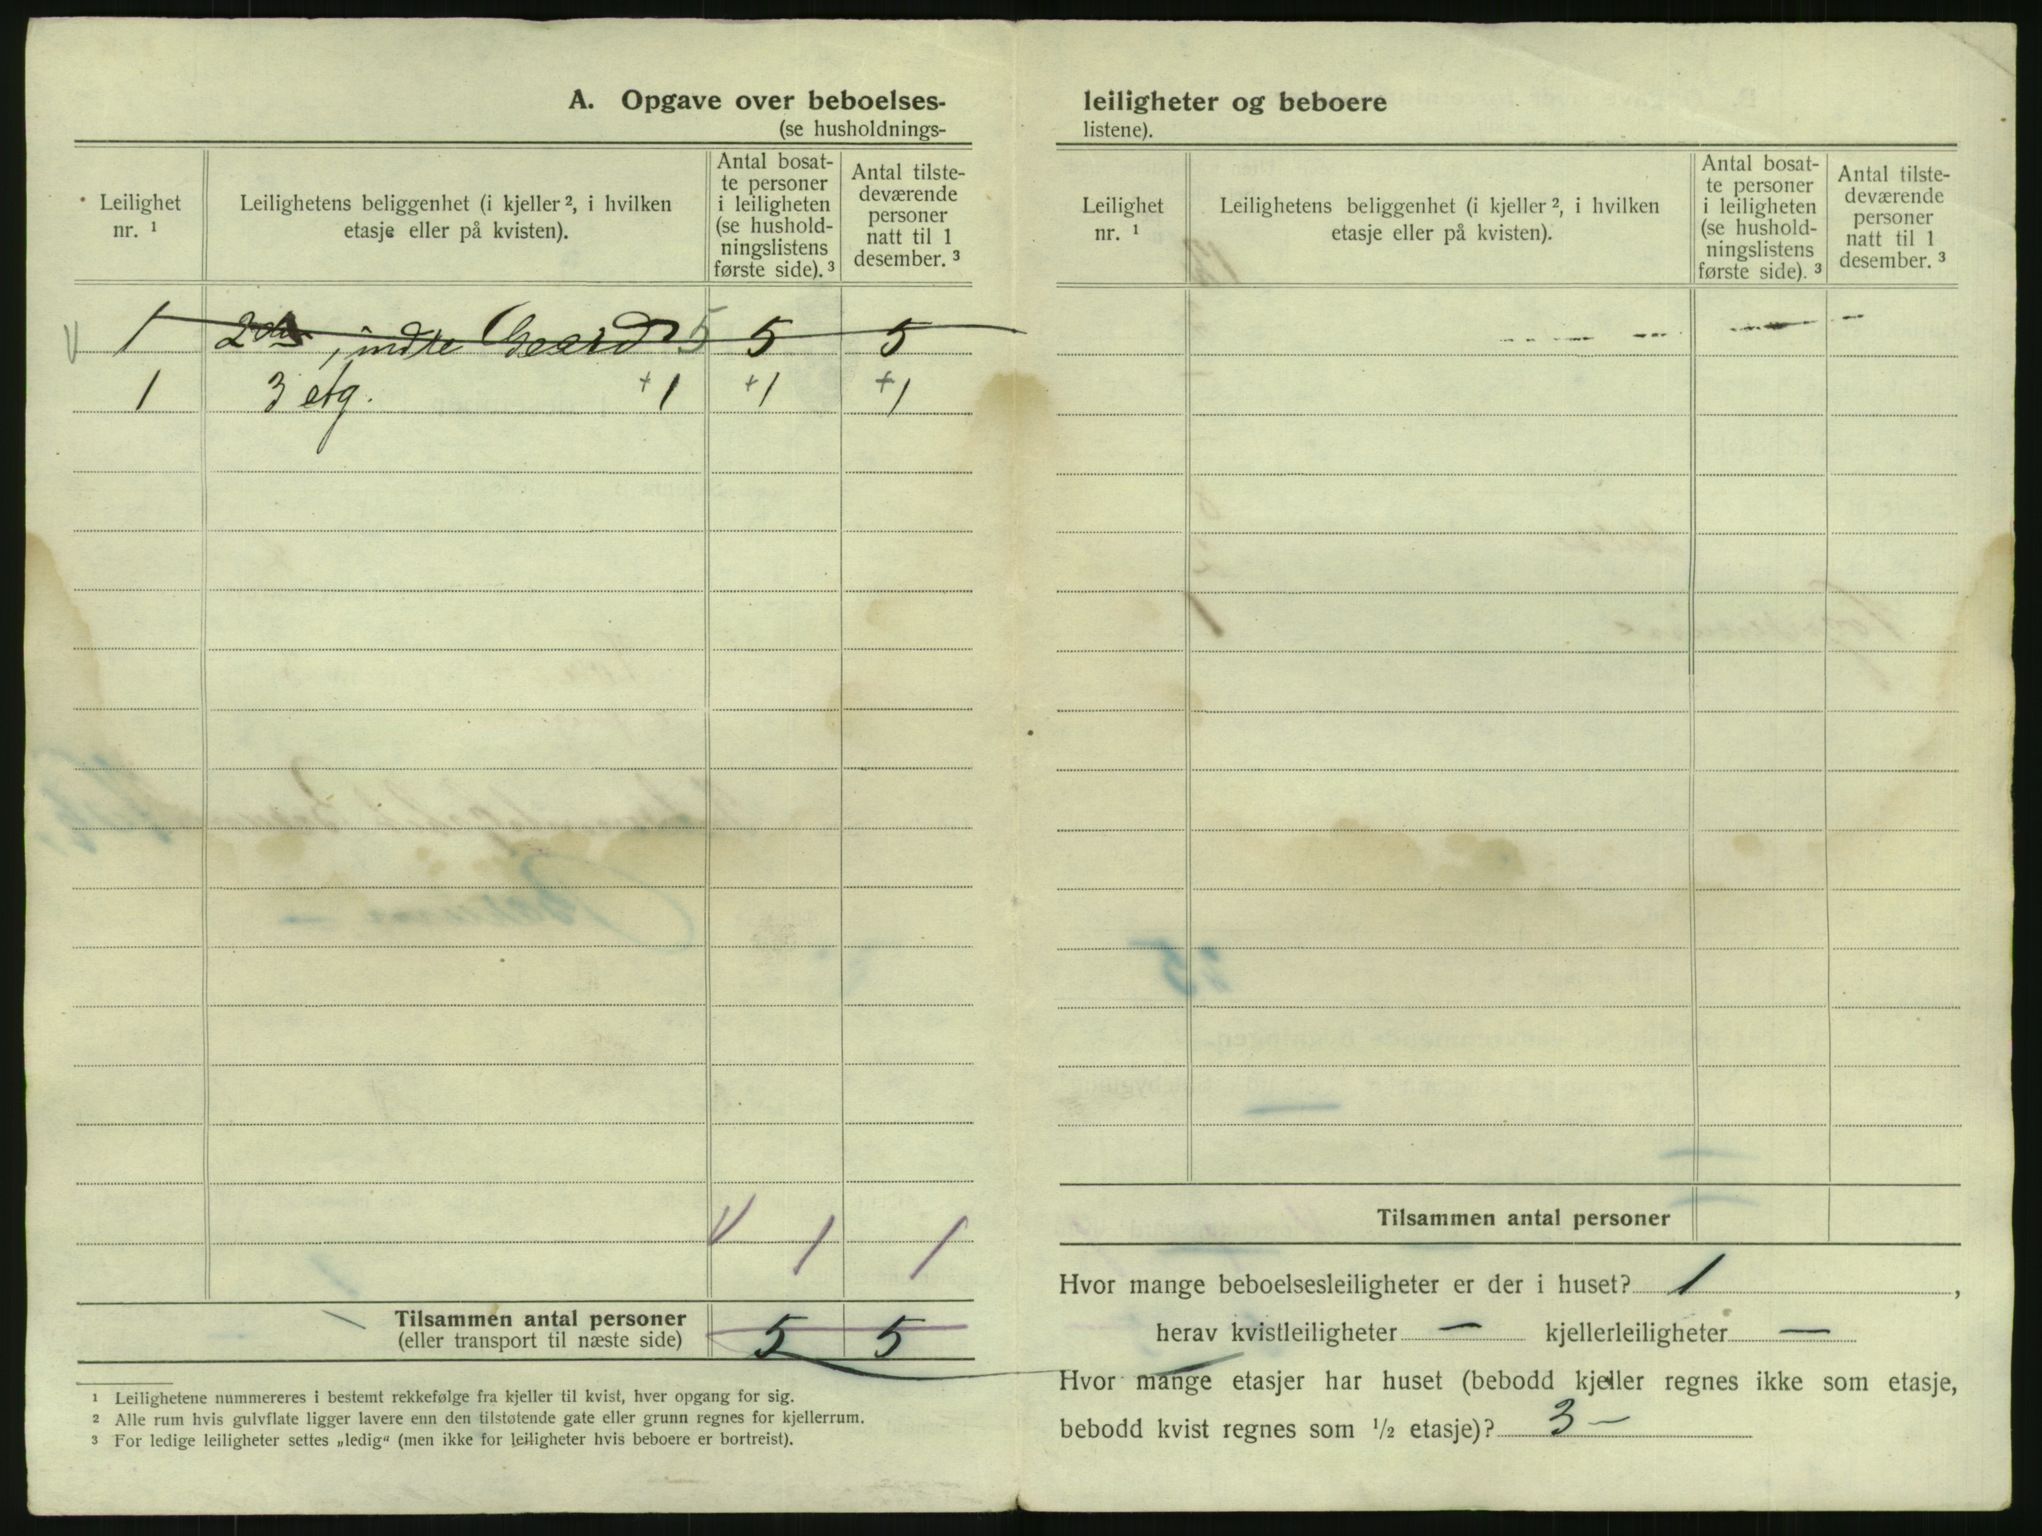 A. Opgave over beboelses-
(se husholdnings-
Leilighet
nr. ¹
Leilighetens beliggenhet (i kjeller ², i hvilken
etasje eller på kvisten).
Antal bosat-
te personer
i leiligheten
(se hushold-
ningslistens
første side). ³
Antal tilste-
deværende
personer
natt til 1
desember. ³
1 indre Gaard 5 5 5
1 3 etg. +1 +1 +1
1 1
Tilsammen antal personer 5 5
(eller transport til næste side)
¹ Leilighetene nummereres i bestemt rekkefølge fra kjeller til kvist, hver opgang for sig.
² Alle rum hvis gulvflate ligger lavere enn den tilstøtende gate eller grunn regnes for kjellerrum.
³ For ledige leiligheter settes „ledig“ (men ikke for leiligheter hvis beboere er bortreist).
leiligheter og beboere
listene).
Leilighet
nr. ¹
Leilighetens beliggenhet (i kjeller ², i hvilken
etasje eller på kvisten).
Antal bosat-
te personer
i leiligheten
(se hushold-
ningslistens
første side). ³
Antal tilste-
deværende
personer
natt til 1
desember. ³
Tilsammen antal personer
Hvor mange beboelsesleiligheter er der i huset? 1,
herav kvistleiligheter — kjellerleiligheter —
Hvor mange etasjer har huset (bebodd kjeller regnes ikke som etasje,
bebodd kvist regnes som ½ etasje)? 3 —